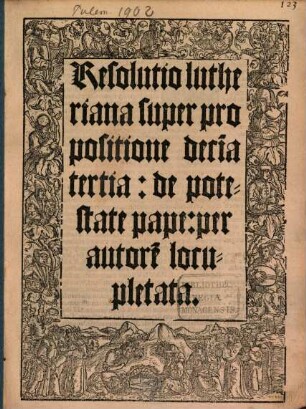 Polem 1902
123
Resolutio luthe
riana super pro
positione decīa
tertia : de pote-
state pape: per
autorē locu-
pletata.
BIBLIOTHECA
REGIA
MONACENSIS